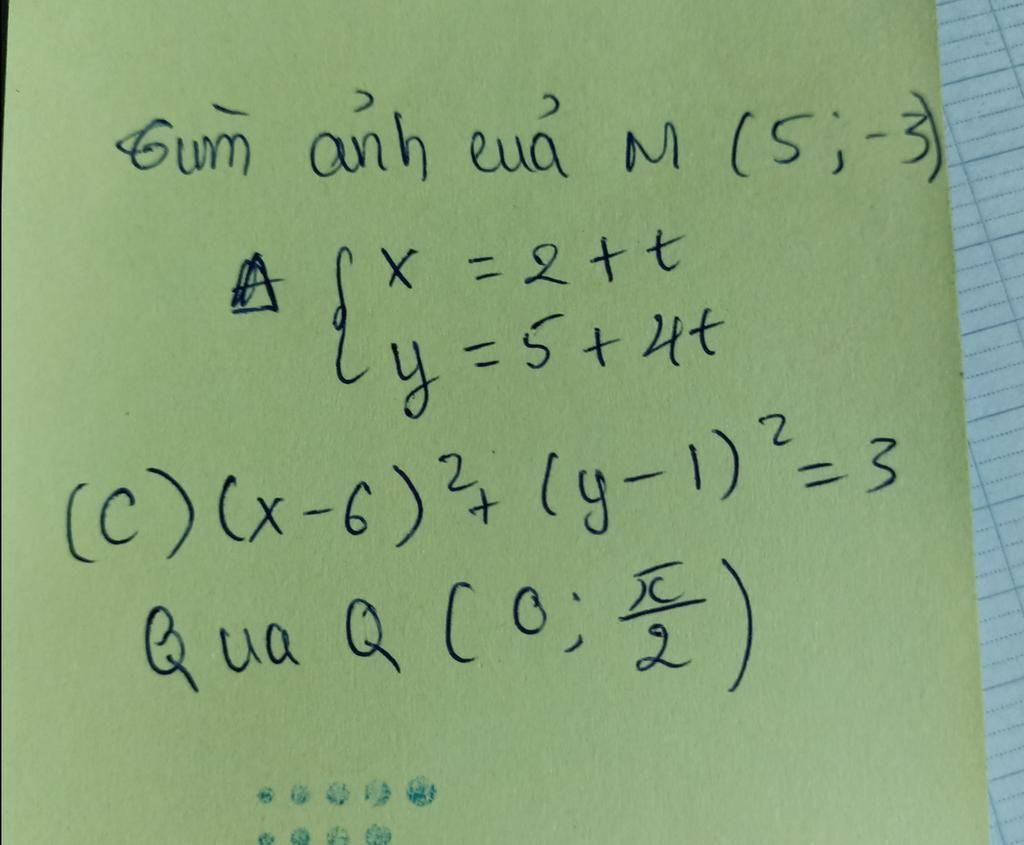 Tìm ảnh của M (5; -3)
Δ { x = 2 + t
y = 5 + 4t
(C) (x - 6)² + (y - 1)² = 3
Qua Q (O; π/2)